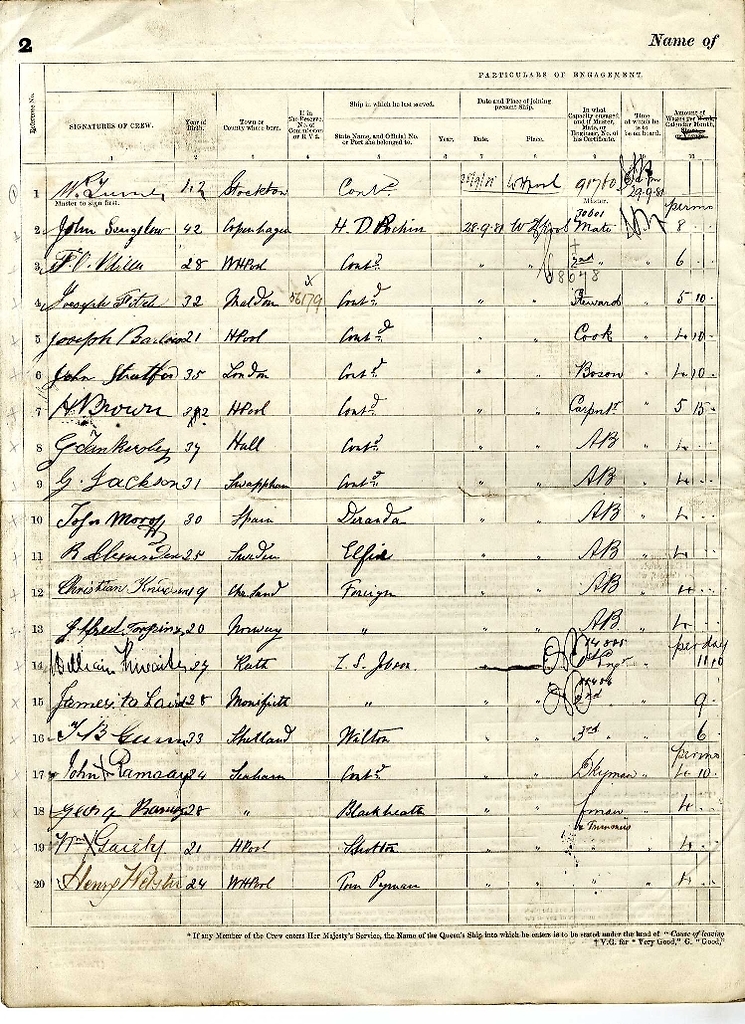 2
Name of
PARTICULARS OF ENGAGEMENT.
Reference No. SIGNATURES OF CREW. Year of Birth. Town or County where born. If in the Reserve, No. of Commission or R V 2. Ship in which he last served. Year. State Name, and Official No. or Port she belonged to. Date and Place of joining present Ship. Date. Place. In what Capacity engaged, and if Master, Mate, or Engineer, No. of his Certificate. Time at which he is to be on board. Amount of Wages per Calendar Month,
1 42 Stockton Contd W Hpool 91760 29-9-81
Master to sign first. Master.
2 John 42 Copenhagen H. D. Pochin 28-9-81 W Hpool 30601 Mate permo 8
3 28 WHPool Contd " " 2nd " 6
68678
4 Joseph 32 Maldon 56179 Contd " " Steward " 5 10
5 Joseph 21 HPool Contd " " Cook " 4 10
6 John Stratford 35 London Contd " " Boson " 4 10
7 H Brown 32 HPool Contd " " Carpntr " 5 15
8 G Tankersley 37 Hull Contd " " AB " 4
9 G. Jackson 31 Contd " " AB " 4
10 John 30 Spain " " AB " 4
11 R 25 Sweden Elfie " " AB " 4
12 Christian 19 Foreign " " AB " 4
13 Alfred 20 Norway " " " AB " 4
14 William Thwaites 27 L. S. Jobson Engr " per day 11/0
15 James 28 Monifieth " 2nd 9
16 T B Gunn 33 Shetland Wilton " " 3rd " 6
17 John X Ramsay 24 Seaham Contd " " Dkyman " permo 4 10
18 George 28 " Blackheath " " fman " 4
& Trimmers
19 Wm X 21 HPool Shotton " " " 4
20 Henry Webster 24 WHPool Tom Pyman " " " " 4
* If any Member of the Crew enters Her Majesty's Service, the Name of the Queen's Ship into which he enters is to be stated under the head of "Cause of leaving
† V.G. for "Very Good," G. "Good,"